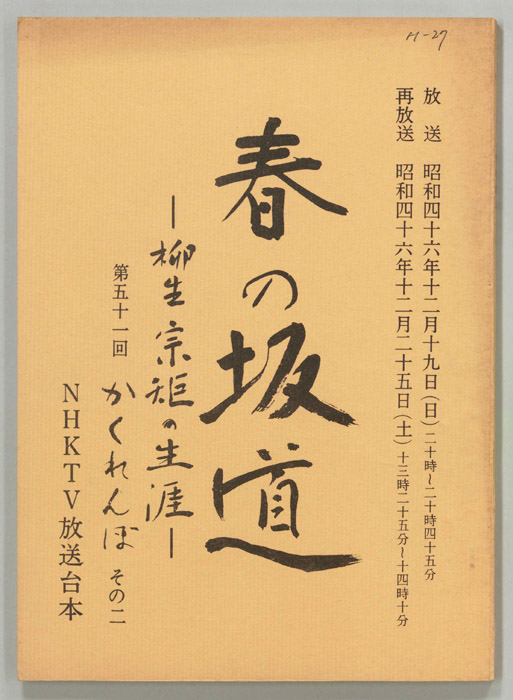 H-27
放送 昭和四十六年十二月十九日(日)二十時~二十時四十五分
再放送 昭和四十六年十二月二十五日(土)十三時二十五分~十四時十分
春の坂道
―柳生宗矩の生涯―
第五十一回 かくれんぼ その二
NHKTV放送台本